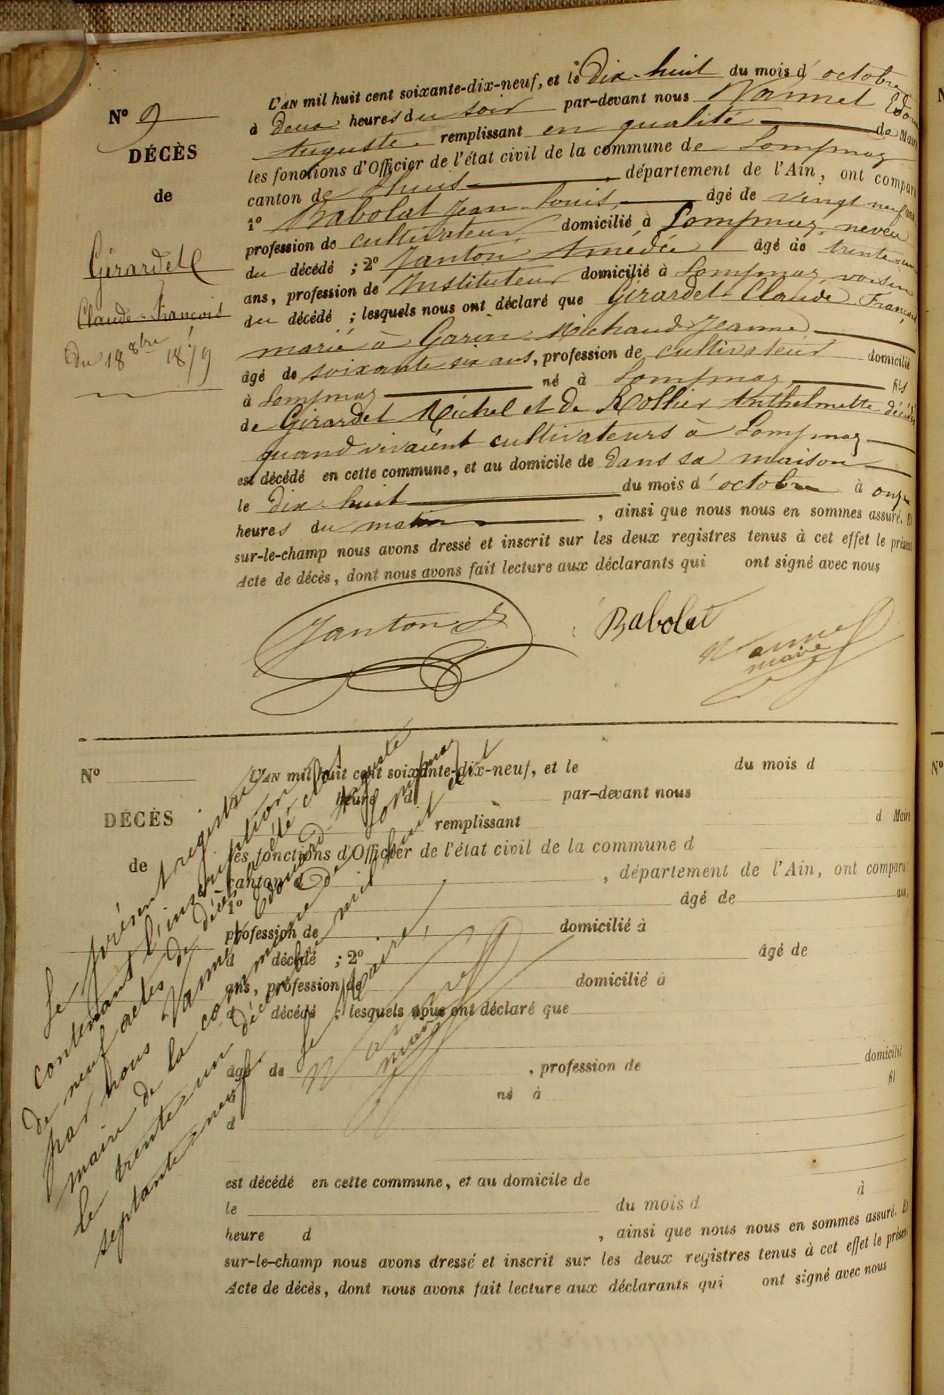 N° 9
DÉCÈS
de
Girardet
Claude-François
du 18 8bre 1879
L'AN mil huit cent soixante-dix-neuf, et le Dix-huit du mois d'octobre
à Deux heures du soir par-devant nous Vanmel
Auguste remplissant en qualité de Maire
les fonctions d'Officier de l'état civil de la commune de Lompnaz
canton de Lhuis département de l'Ain, ont comparu
1° Babolat Jean Louis, âgé de vingt neuf
profession de cultivateur domicilié à Lompnaz, neveu
du décédé ; 2° Janton Amédée âgé de trente
ans, profession de Instituteur domicilié à Lompnaz, voisin
du décédé ; lesquels nous ont déclaré que Girardet Claude François
marié à Garin-Michaud Jeanne
âgé de soixante six ans, profession de cultivateur domicilié
à Lompnaz né à Lompnaz fils
de Girardet Michel et de Rollier Anthelmette
quand vivaient cultivateurs à Lompnaz
est décédé en cette commune, et au domicile de dans sa maison
le dix-huit du mois d'octobre à onze
heures du matin, ainsi que nous nous en sommes assuré. Et
sur-le-champ nous avons dressé et inscrit sur les deux registres tenus à cet effet le présent
Acte de décès, dont nous avons fait lecture aux déclarants qui ont signé avec nous
Janton Babolat
maire
N°
DÉCÈS
de
L'AN mil huit cent soixante-dix-neuf, et le du mois d
heure d par-devant nous
remplissant d Maire
les fonctions d'Officier de l'état civil de la commune d
canton d , département de l'Ain, ont comparu
1° âgé de
profession de domicilié à
d décédé ; 2° âgé de
ans, profession de domicilié à
d décédé ; lesquels nous ont déclaré que
âgé de , profession de domicilié
né à fil
d
est décédé en cette commune, et au domicile de
le du mois d à
heure d , ainsi que nous nous en sommes assuré. Et
sur-le-champ nous avons dressé et inscrit sur les deux registres tenus à cet effet le présent
Acte de décès, dont nous avons fait lecture aux déclarants qui ont signé avec nous
Le présent registre
contenant l'inscription
de neuf actes de décès a été clos
par nous Edouard Auguste
maire de la commune de Lompnaz
le trente-un décembre mil huit cent
septante-neuf. Le Maire,
N°